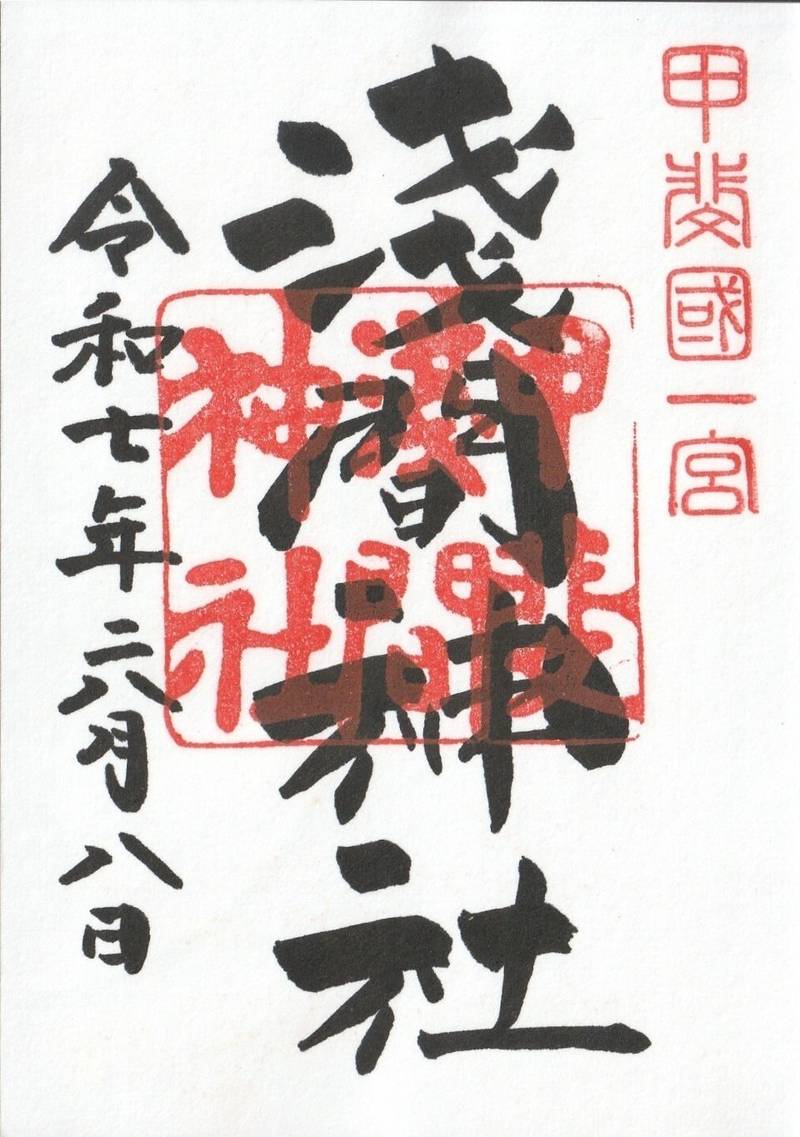 甲斐國一宮
淺間神社
甲斐
淺間
神社
令和七年六月八日